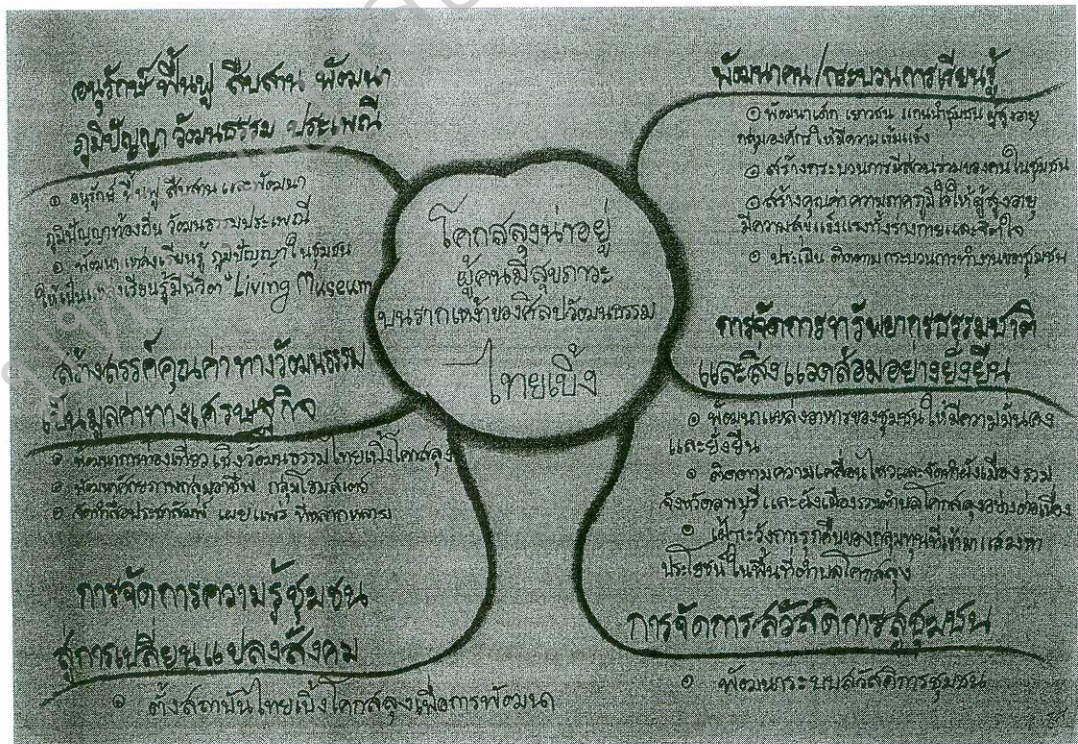 อนุรักษ์ ฟื้นฟู สืบสาน พัฒนา
ภูมิปัญญา วัฒนธรรม ประเพณี
อนุรักษ์ ฟื้นฟู สืบสาน และพัฒนา
ภูมิปัญญาท้องถิ่น วัฒนธรรมประเพณี
พัฒนาแหล่งเรียนรู้ ภูมิปัญญาในชุมชน
ให้เป็นแหล่งเรียนรู้มีชีวิต "Living Museum
สร้างสรรค์คุณค่าทางวัฒนธรรม
เป็นมูลค่าทางเศรษฐกิจ
พัฒนาการท่องเที่ยวเชิงวัฒนธรรมไทยเบิ้งโคกสลุง
พัฒนาศักยภาพกลุ่มอาชีพ กลุ่มโฮมสเตย์
จัดทำสื่อประชาสัมพันธ์ เผยแพร่ ที่หลากหลาย
การจัดการความรู้ชุมชน
สู่การเปลี่ยนแปลงสังคม
ตั้งสถาบันไทยเบิ้งโคกสลุงเพื่อการพัฒนา
โคกสลุงน่าอยู่
ผู้คนมีสุขภาวะ
บนรากเหง้าของศิลปวัฒนธรรม
ไทยเบิ้ง
พัฒนาคน/กระบวนการเรียนรู้
พัฒนาเด็ก เยาวชน แกนนำชุมชน ผู้สูงอายุ
กลุ่มองค์กรให้มีความเข้มแข็ง
สร้างกระบวนการมีส่วนร่วมของคนในชุมชน
สร้างคุณค่า ความภาคภูมิใจให้ผู้สูงอายุ
มีความแข็งแรงทั้งร่างกายและจิตใจ
ประเมิน ติดตาม กระบวนการทำงานของชุมชน
การจัดการทรัพยากรธรรมชาติ
และสิ่งแวดล้อมอย่างยั่งยืน
พัฒนาแหล่งอาหารของชุมชนให้มีความมั่นคง
และยั่งยืน
ติดตามความเคลื่อนไหวและจัดทำผังเมืองรวม
จังหวัดลพบุรี และผังเมืองรวมตำบลโคกสลุงอย่างต่อเนื่อง
เฝ้าระวังการรุกคืบของกลุ่มทุนที่เข้ามาแสวงหา
ประโยชน์ในพื้นที่ตำบลโคกสลุง
การจัดการสวัสดิการสู่ชุมชน
พัฒนาระบบสวัสดิการชุมชน